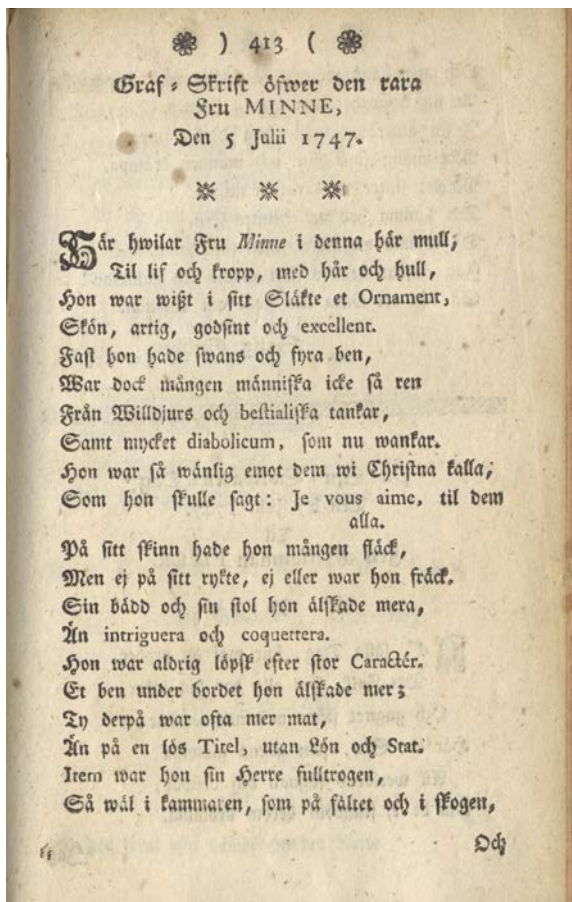 ) 413 (
Graf-Skrift öfwer den rara
Fru MINNE,
Den 5 Julii 1747.
Här hwilar Fru Minne i denna här mull,
Til lif och kropp, med hår och hull,
Hon war wißt i sitt Släkte et Ornament,
Skön, artig, godsint och excellent.
Fast hon hade swans och fyra ben,
War dock mången människa icke så ren
Från Willdjurs och bestialiska tankar,
Samt mycket diabolicum, som nu wankar.
Hon war så wänlig emot dem wi Christna kalla,
Som hon skulle sagt: Je vous aime, til dem
alla.
På sitt skinn hade hon mången fläck,
Men ej på sitt rykte, ej eller war hon fräck.
Sin bädd och sin stol hon älskade mera,
Än intriguera och coquettera.
Hon war aldrig löpsk efter stor Caractér.
Et ben under bordet hon älskade mer;
Ty derpå war ofta mer mat,
Än på en lös Titel, utan Lön och Stat.
Item war hon sin Herre fulltrogen,
Så wäl i kammaren, som på fältet och i skogen,
Och